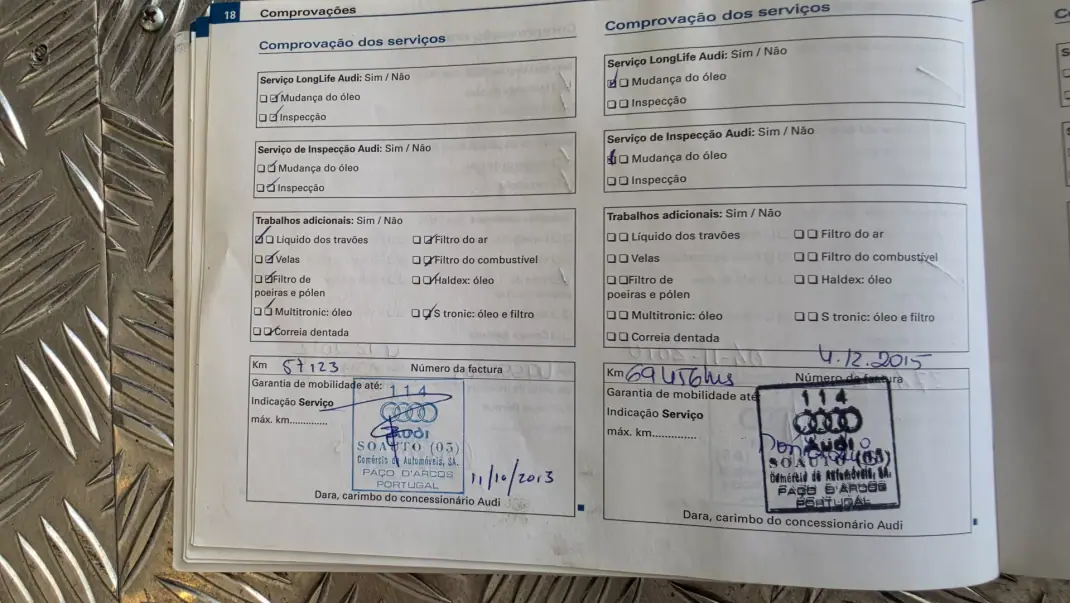 18 Comprovações
Comprovação dos serviços
Serviço LongLife Audi: Sim / Não
Mudança do óleo
Inspecção
Serviço de Inspecção Audi: Sim / Não
Mudança do óleo
Inspecção
Trabalhos adicionais: Sim / Não
Líquido dos travões
Filtro do ar
Velas
Filtro do combustível
Filtro de
poeiras e pólen
Haldex: óleo
Multitronic: óleo
S tronic: óleo e filtro
Correia dentada
Km 57123
Número da factura
Garantia de mobilidade até:
Indicação Serviço
máx. km.............
114
AUDI
SOAUTO (03)
Comércio de Automóveis, SA.
PAÇO D'ARCOS
PORTUGAL
11/10/2013
Dara, carimbo do concessionário Audi
Comprovação dos serviços
Serviço LongLife Audi: Sim / Não
Mudança do óleo
Inspecção
Serviço de Inspecção Audi: Sim / Não
Mudança do óleo
Inspecção
Trabalhos adicionais: Sim / Não
Líquido dos travões
Filtro do ar
Velas
Filtro do combustível
Filtro de
poeiras e pólen
Haldex: óleo
Multitronic: óleo
S tronic: óleo e filtro
Correia dentada
4.12.2015
Km 69456
Número da factura
Garantia de mobilidade até
Indicação Serviço
máx. km.............
114
AUDI
SOAUTO (03)
Comércio de Automóveis, SA.
PAÇO D'ARCOS
PORTUGAL
Dara, carimbo do concessionário Audi